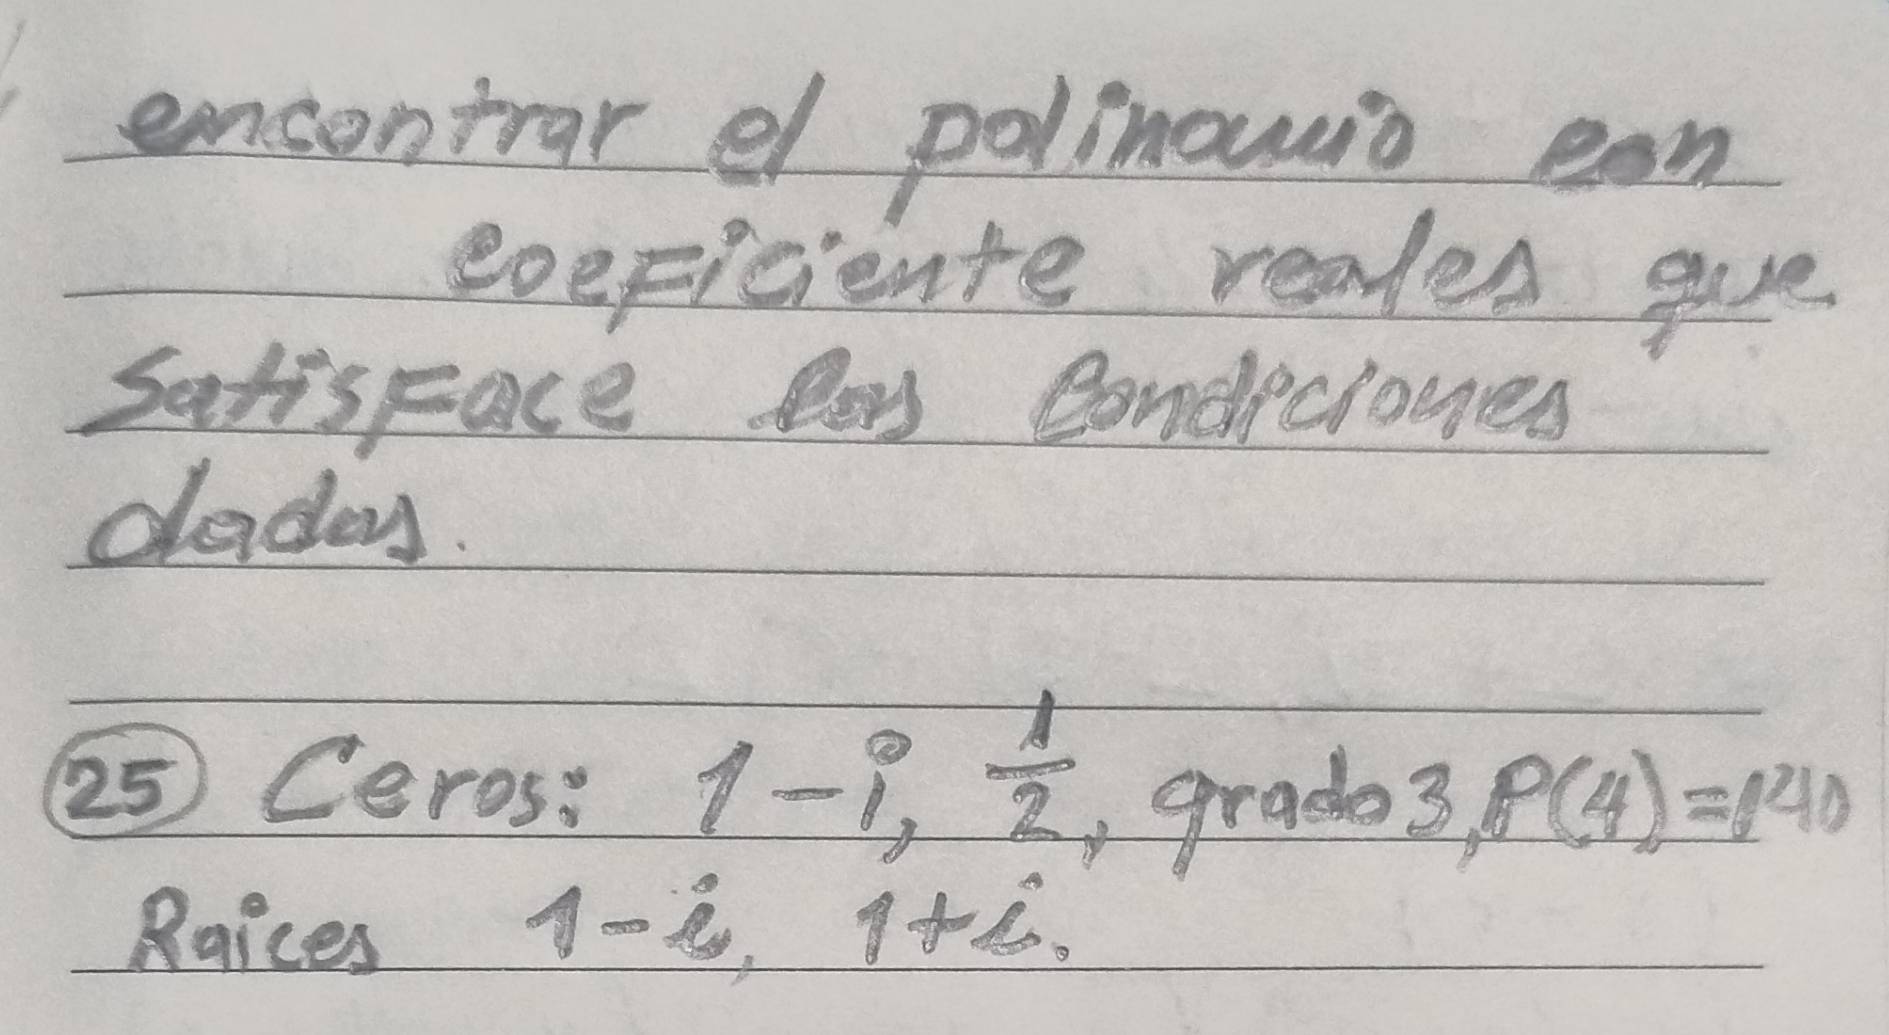 encontrar el polinomio con
coeficiente reales que
satisface las condiciones
dadas.
25 Ceros: 1-i, 1/2, grado 3, P(4)=140
Raices 1-i, 1+i.